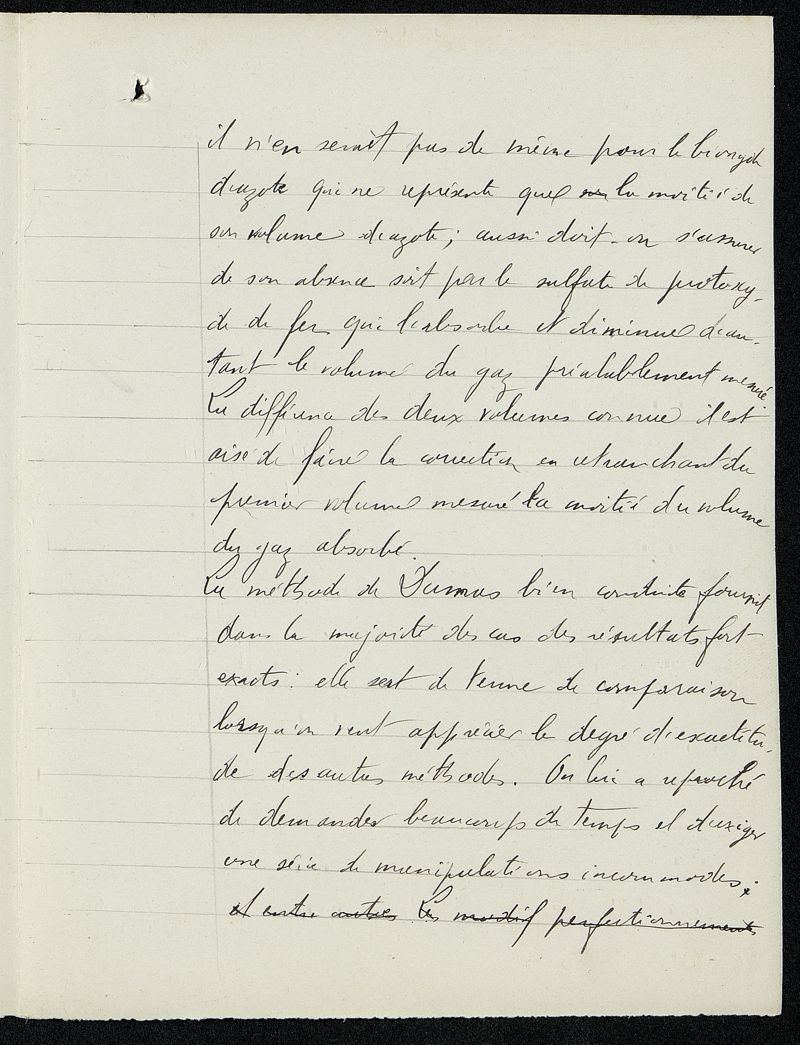 il n'en serait pas de même pour le bioxyde
d'azote qui ne représente que son la moitié de
son volume d'azote; aussi doit-on s'assurer
de son absence soit par le sulfate de protoxy-
de de fer qui l'absorbe et diminue d'au-
tant le volume du gaz préalablement mesuré.
La différence des deux volumes connue il est
aisé de faire la correction en retranchant du
premier volume mesuré la moitié du volume
du gaz absorbé.
La méthode de Dumas bien conduite fournit
dans la majorité des cas des résultats fort
exacts: elle sert de terme de comparaison
lorsqu'on veut apprécier le degré d'exactitu-
de des autres méthodes. On lui a reproché
de demander beaucoup de temps et d'exiger
une série de manipulations incommodes;
et entre autres les modif perfectionnements